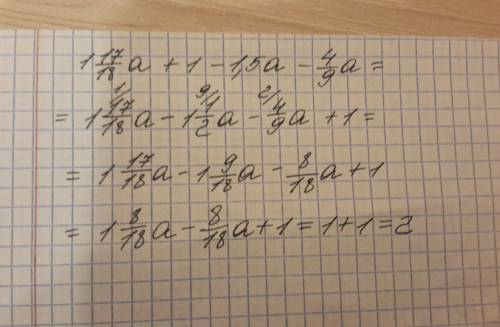 1 17/18 a + 1 - 1,5a - 4/9 a =
= 1 1/17/18 a - 1 9/1/2 a - 2/4/9 a + 1 =
= 1 17/18 a - 1 9/18 a - 8/18 a + 1
= 1 8/18 a - 8/18 a + 1 = 1 + 1 = 2